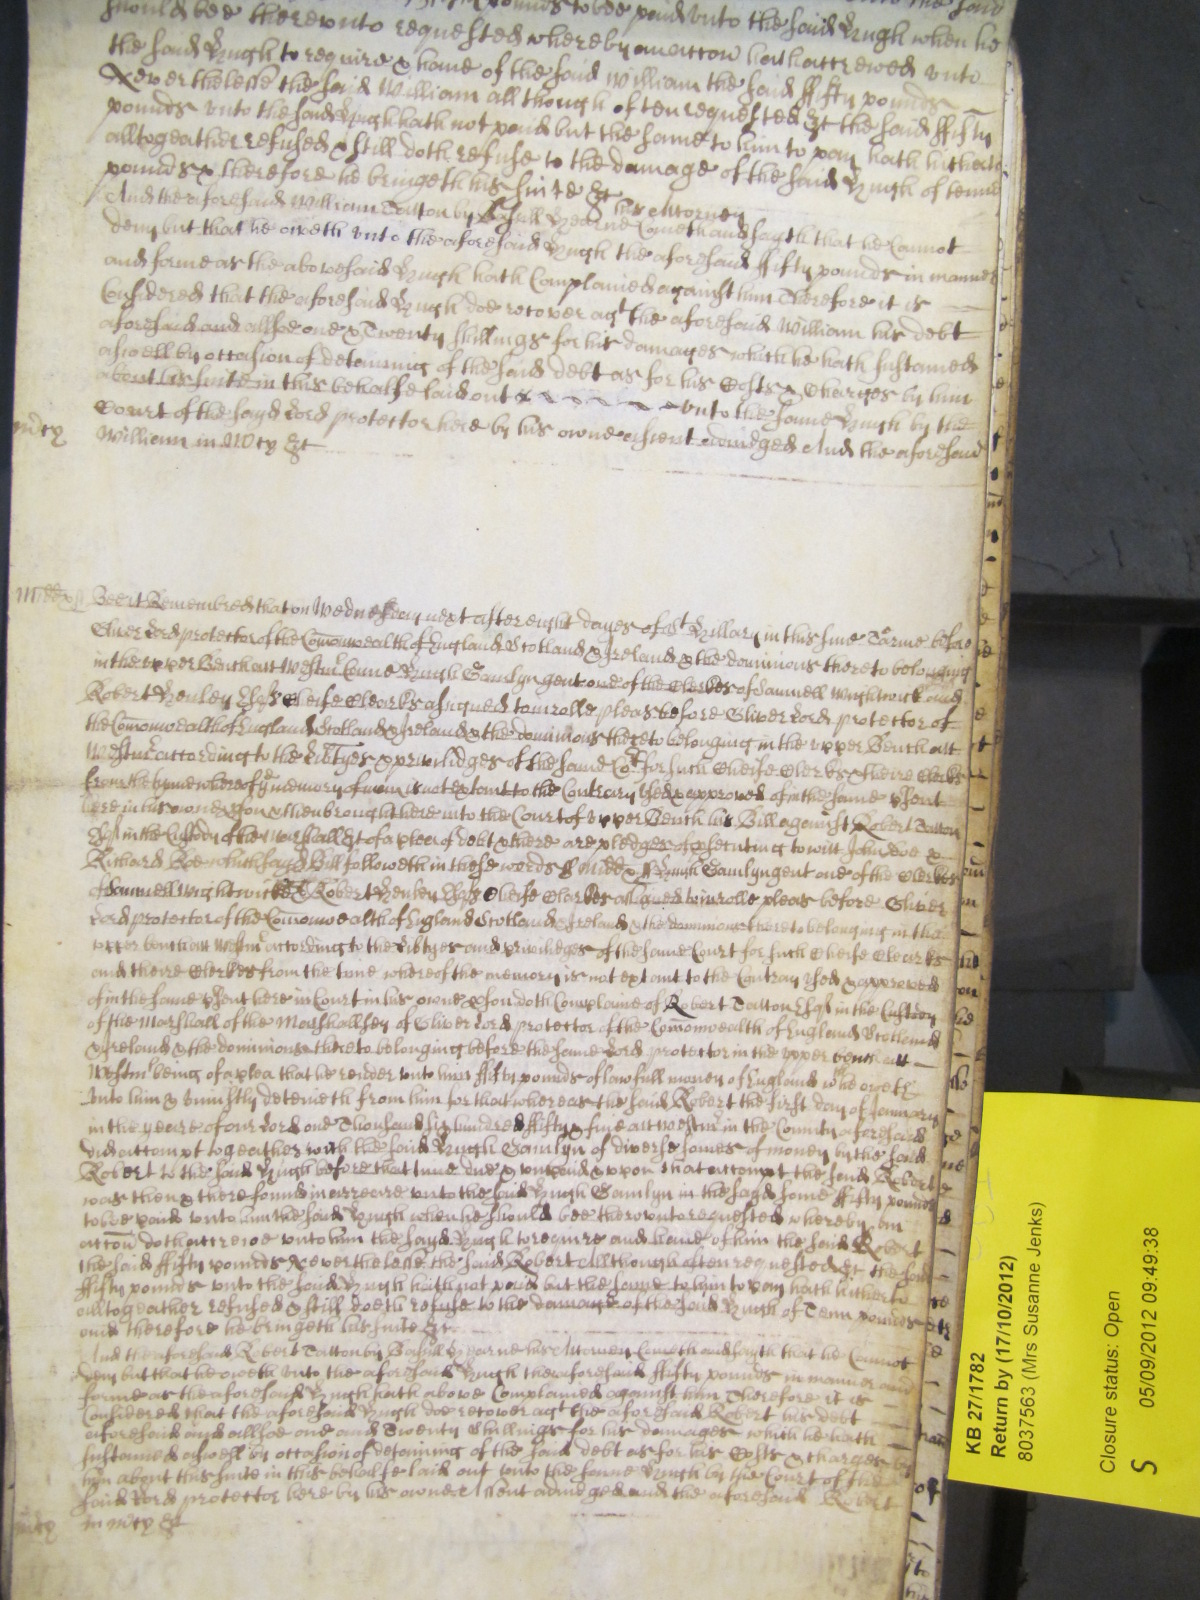 should bee therevnto requested whereby an accon hath accrewed vnto
the said Hugh to require & haue of the said William the said ffifty pounds
Neverthelesse the said William allthough often requested &c the said ffifty
pounds vnto the said Hugh hath not paid but the same to him to pay hath hitherto
alltogeather refused & still doth refuse to the damage of the said Hugh of tenne
pounds & therefore he bringeth his suite &c
And the aforesaid William Tatton by Basill Hearne his Attorney Cometh and sayth that he Cannot
deny but that he oweth vnto the aforesaid Hugh the aforesaid ffifty pounds in manner
and forme as the abovesaid Hugh hath Complained against him Therefore it is
Considered that the aforesaid Hugh doe recover agt the aforesaid William his debt
aforesaid and allsoe one & Twenty shillings for his damages which he hath sustained
aswell by occasion of detaining of the said debt as for his Costs & Charges by him
about his suite in this behalfe laid out vnto the same Hugh by the
Court of the sayd Lord protector here by his owne assent adiudged And the aforesaid
mcy
William in Mcy &c
Middx
Beeit Remembred that on Wednesday next after eight dayes of st Hillary in this same Tearme before
Oliver Lord protector of the Comonwealth of England Scotland & Ireland & the dominions thereto belonging
in the vpper Bench att Westmr Came Hugh Gamlyn gent one of the Clerkes of Samuell Wightwick and
Robert Henley Esqs Cheife Clearks assigned to inrolle pleas before Oliver Lord protector of
the Comonwealth of England Scotland & Ireland & the dominions thereto belonging in the vpper Bench att
Westmr according to the Libtyes & priviledges of the same Cort for such Cheife Clerks & theire Clerks
from the tyme whereof ye memory of man is not extant to the Contrary vsed & approved of in the same psent
here in his owne pson & then brought here into the Court of vpper Bench his Bill against Robert Tatton
Esqr in the Custody of the Marshall &c of a plea of debt & there are pledges of psecuting to witt John Doe &
Richard Roe which sayd Bill followeth in these words ss Middx ss Hugh Gamlyn gent one of the Clerkes
of Samuell Wightwicke & Robert Henley Esqs Cheife Clarkes assigned to inrolle pleas before Oliver
Lord protector of the Comonwealth of England Scotland & Ireland & the dominions thereto belonging in the
vpper bench att Westmr according to the Libtyes and priviledges of the same Court for such Cheife Clearks
and theire Clerkes from the time whereof the memory is not extant to the Contrary vsed & approved
of in the same psent here in Court in his owne pson doth Complaine of Robert Tatton Esqr in the Custody
of the Marshall of the Marshallsey of Oliver Lord protector of the Comonwealth of England Scotland
& Ireland & the dominions thereto belonging before the same Lord protector in the vpper bench att
Westmr being of a plea that he render vnto him ffifty pounds of lawfull money of England wch he oweth
vnto him & vniustly deteineth from him for that whereas the said Robert the first day of January
in the yeare of our Lord one Thousand six hundred ffifty & five att Westmr in the County aforesaid
did accompt togeather with the said Hugh Gamlyn of diverse somes of money by the said
Robert to the said Hugh before that time due & vnpaid & vpon that accompt the said Robert
was then & there found in arreare vnto the said Hugh Gamlyn in the sayd some ffifty pounds
to bee paid vnto him the said Hugh when he should bee therevnto requested whereby an
accon doth accrewe vnto him the sayd Hugh to require and haue of him the said Robert
the said ffifty pounds Neverthelesse the said Robert Allthough often requested &c the said
ffifty pounds vnto the said Hugh hath not paid but the same to him to pay hath hitherto
alltogeather refused & still doeth refuse to the damage of the said Hugh of Tenn pounds
and therefore he bringeth his suite &c
And the aforesaid Robert Tatton by Basill Hearne his Attorney Cometh and sayth that he Cannot
deny but that he oweth vnto the aforesaid Hugh the aforesaid ffifty pounds in manner and
forme as the aforesaid Hugh hath above Complained against him Therefore it is
Considered that the aforesaid Hugh doe recover agt the aforesaid Robert his debt
aforesaid and allsoe one and Twenty shillings for his damages which he hath
sustained aswell by occasion of detaining of the said debt as for his Costs & Charges by
him about this suite in this behalfe laid out vnto the same Hugh by the Court of the
said Lord protector here by his owne Assent adiudged and the aforesaid Robert
mcy
in mcy &c
KB 27/1782
Return by (17/10/2012)
8037563 (Mrs Susanne Jenks)
Closure status: Open
S 05/09/2012 09:49:38